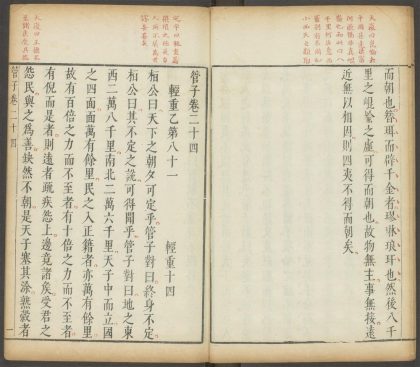 而朝也簪珥而辟千金者璆琳琅玕也然後八千
里之崐崘之虛可得而朝也故物無主事無接遠
近無以相因則四夷不得而朝矣
管子卷二十四
輕重乙第八十一 輕重十四
桓公曰天下之朝夕可定乎管子對曰終身不定
桓公曰其不定之說可得聞乎管子對曰地之東
西二萬八千里南北二萬六千里天子中而立國
之四面面萬有餘里民之入正籍者亦萬有餘里
故有百倍之力而不至者有十倍之力而不至者
有倪而是者則遠者疏疾怨上邊竟諸矦受君之
怨民與之為善缺然不朝是天子塞其涂熟穀者
管子卷二十四 一